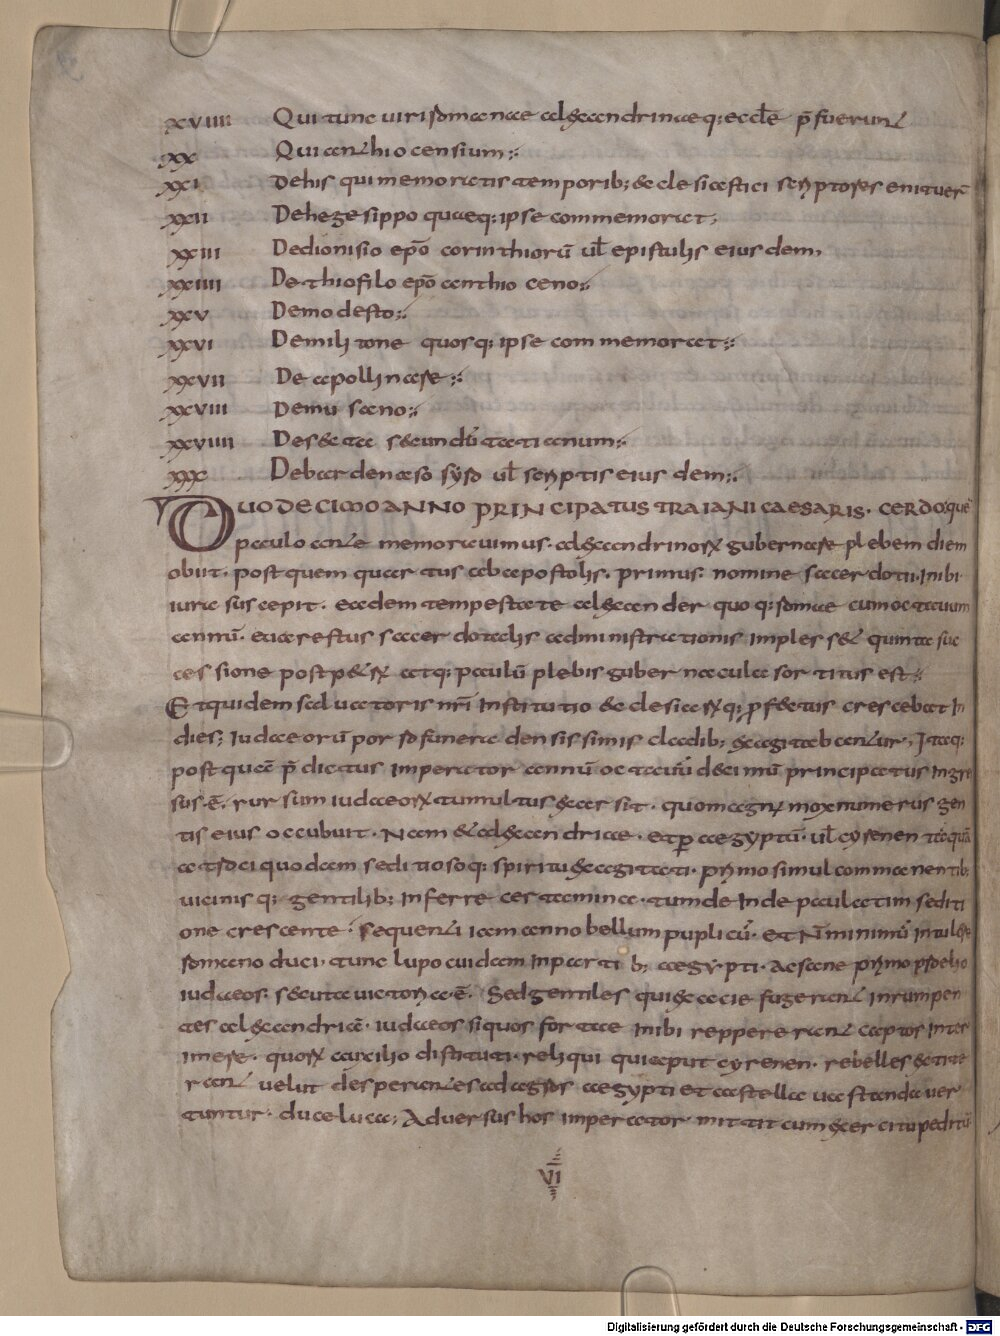 XVIIII Qui tunc uiri romanae alexandrinaeq; eccle p̄fuerunt
XX Qui anthiocensium
XXI De his qui memoratis temporib; ecclesiastici scriptores enituer̄
XXII De hegesippo quaeq; ipse commemorat
XXIII De dionisio epō corinthiorū ul epistulis eiusdem
XXIIII De thiofilo epō anthioceno
XXV De modesto
XXVI De militone quosq; ipse commemorat
XXVII De apollinare
XXVIII De musano
XXVIIII De secta secundū tatianum
XXX De bardenaeso syro ul scriptis eiusdem
DUODECIMO ANNO PRINCIPATUS TRAIANI CAESARIS. CERDO. quē
paulo ante memorauimus. alexandrinorꝝ gubernare plebem diem
obiit. post quem quartus ab apostolis. primus nomine sacerdotii. inibi
iura suscepit. eadem tempestate alexander quoq; romae cum octauum
annū. euarestus sacerdotalis administrationis implesset quinta suc
cessione post petrꝝ atq; paulū plebis gubernacula sortitus est
Et quidem saluatoris nr̄i institutio ecclesiaeꝝq; profectus crescebat in
dies; Iudaeorū porro funera densissimis cladib; exagitabantur, Itaq;
postquā p̄dictus imperator annū octauū decimū principatus ingre
sus. ē. rursum iudaeorꝝ tumultus exarsit. quo magnꝝ maximus numerus gen
tis eius occubuit. Nam et alexandriae. et ꝑ aegyptū. ul cyrenen
ac troci quodam seditiosoq; spiritu exagitati. primo simul commanentib;
uicinisq; gentilib; inferre certamina. tum deinde paulatim sediti
one crescente. sequenti iam anno bellum puplicū. et N̄ minimū intulere
romano duci. tunc lupo cuidam inpartib; aegypti. ac sane primo proelio
iudaeos. secuta uictoria. ē. Sed gentiles qui ex acie fugerant inrumpen
tes alexandriā. iudaeos si quos forte inibi reppererant captos inter
imere. quorꝝ auxilio distituti. reliqui qui aput cyrenen. rebelles extite
rant uelut desperantes ad agros aegypti et castella uastanda uer
tuntur. duce luca; Aduersus hos imperator mittit cum exercitu peditū
VI
Digitalisierung gefördert durch die Deutsche Forschungsgemeinschaft - DFG